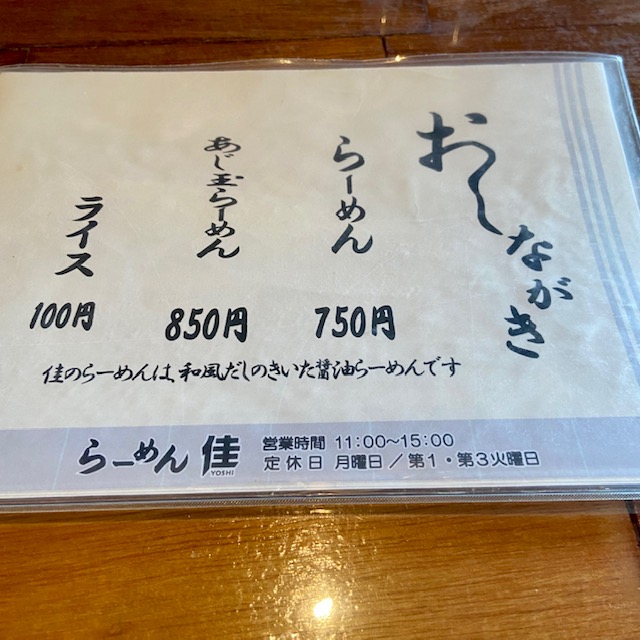 おしながき
らーめん
750円
あじ玉らーめん
850円
ライス
100円
佳のらーめんは、和風だしのきいた醤油らーめんです
らーめん 佳
YOSHI
営業時間 11:00〜15:00
定休日 月曜日／第1・第3火曜日